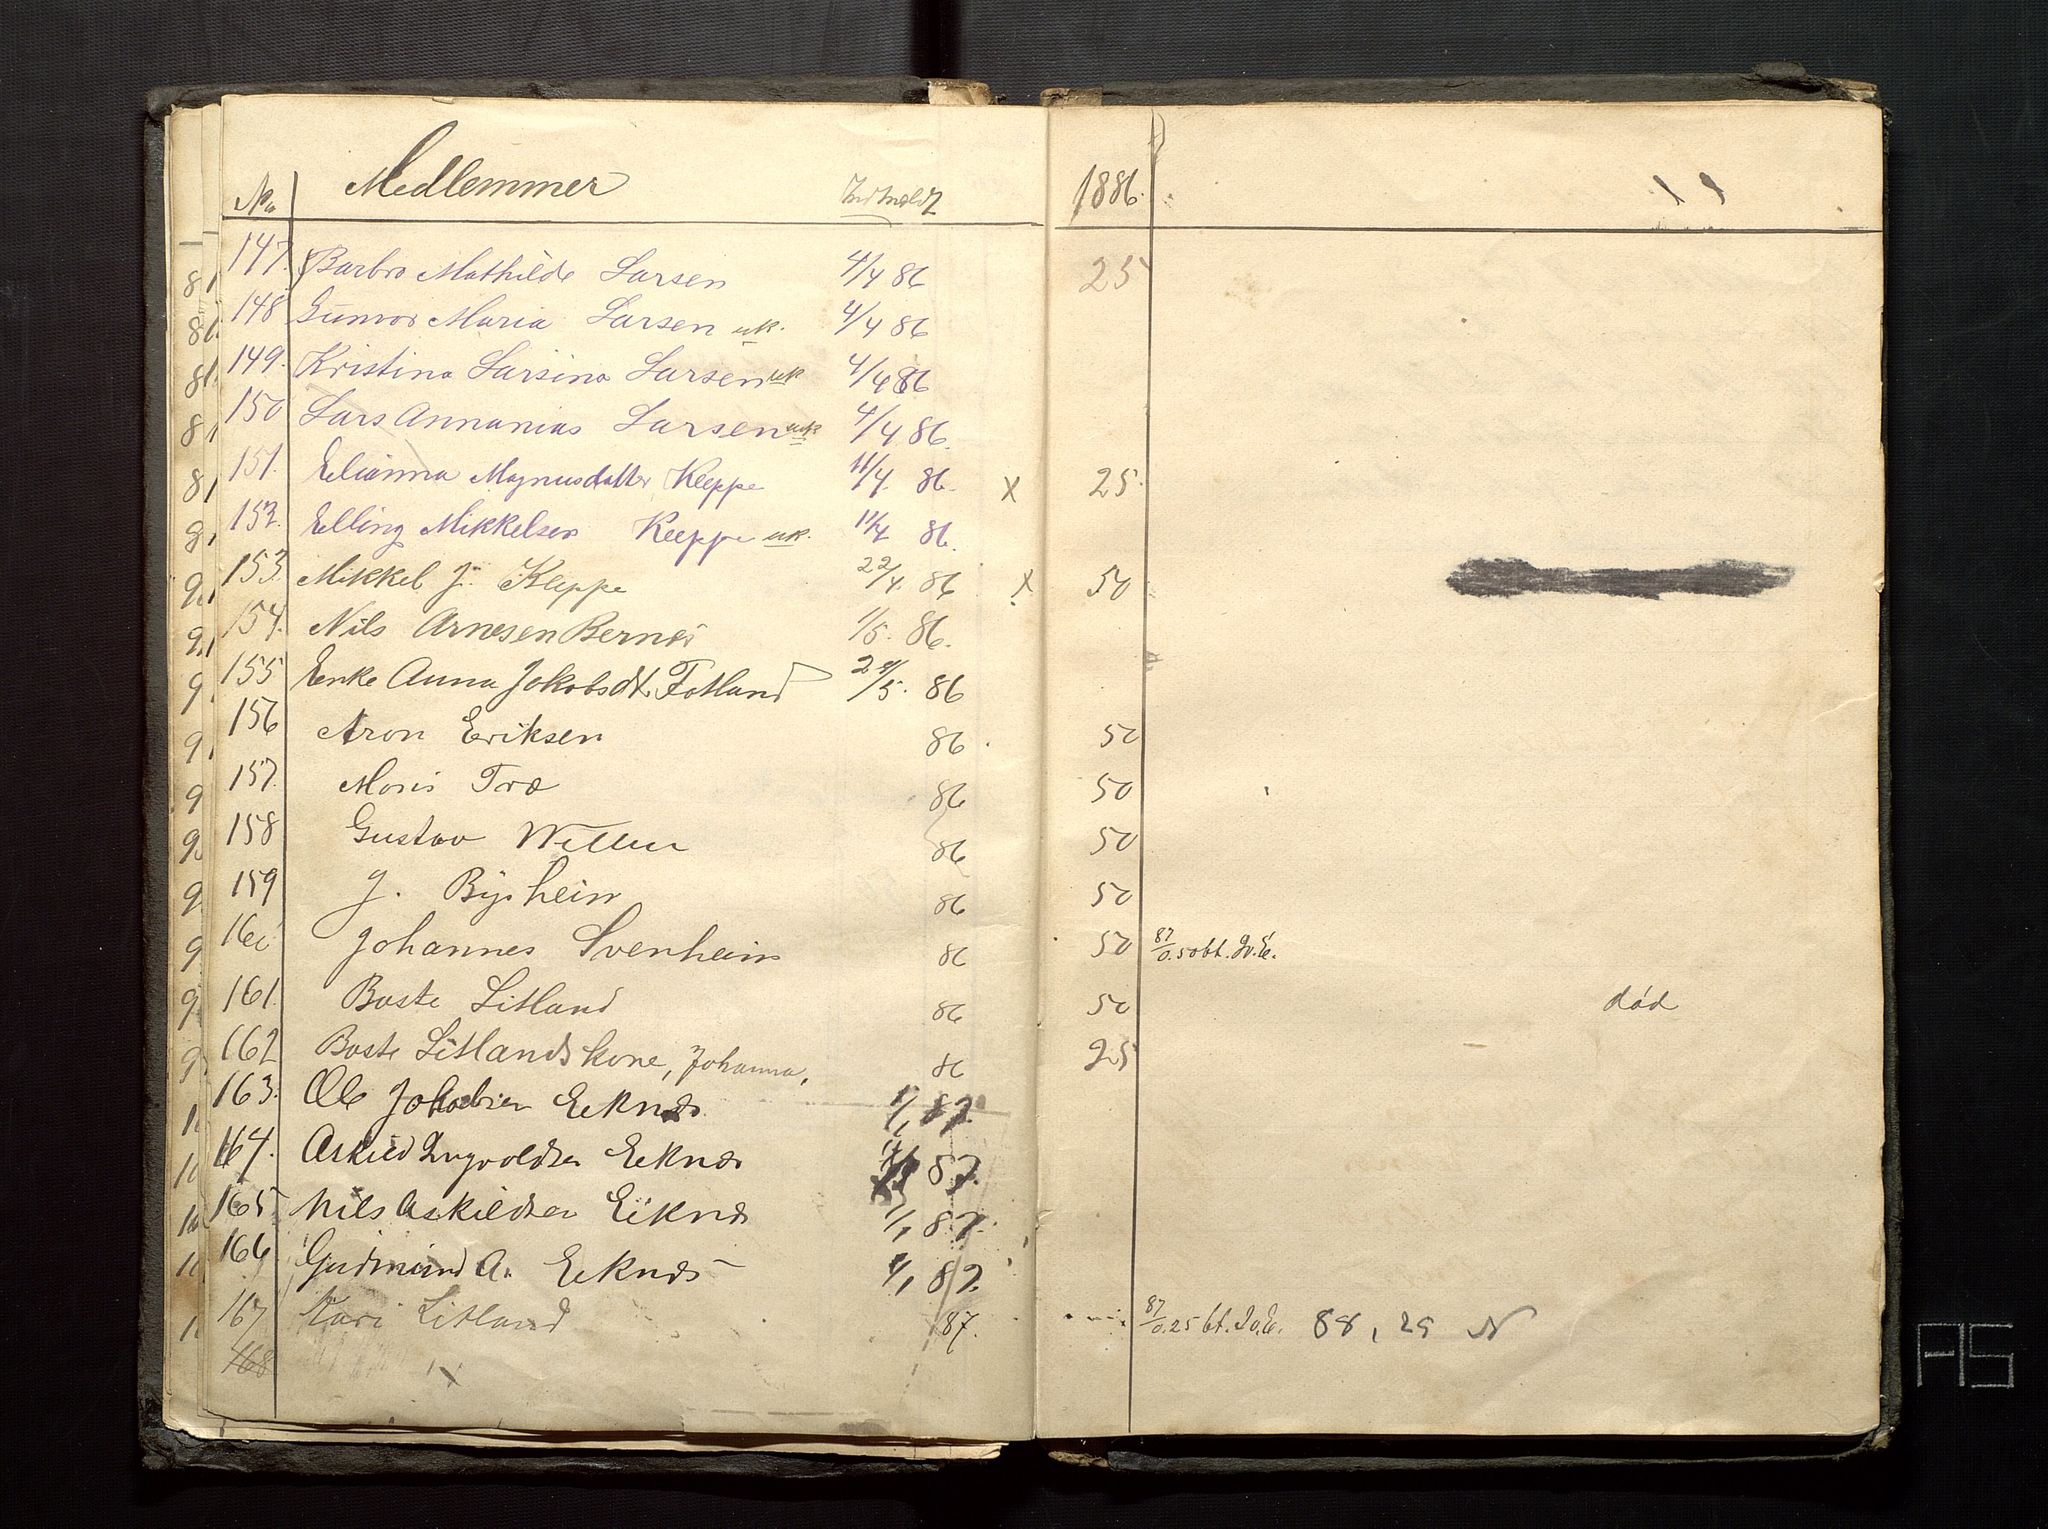 No Medlemmer Indmeldt 1886.
147. Barbro Mathilde Larsen 4/4 86 25
148 Gunvor Maria Larsen uk. 4/4 86
149. Kristina Larsina Larsen uk 4/4 86
150 Lars Annanias Larsen uk 4/4 86.
151. Elianna Magnusdatter Kleppe 11/4. 86. X 25.
152. Elling Mikkelsen Kleppe uk. 11/4 86.
153. Mikkel J. Kleppe 22/4. 86 X 50
154. Nils Arnesen Bernæs 1/5. 86.
155 Enke Anna Jakobsdt. Fotland 2 /5. 86
156 Aron Eriksen 86 50
157. Moris Træ 86 50
158 Gustav 86 50
159 J. Bysheim 86 50
160 Johannes Svenheim 86 50 87/0.50 bt. Jv.E.
161. Boste Litland 86 50 død
162 Boste Litlands kone, Johanna, 86 25
163. Ole Jakobsen Eeknæs 1/1 87.
164. Askild Ingvoldsen Eeknæs 87.
165 Nils Askildsen Eiknæs 1/1 87.
166 Gudmund A. Eeknæs 1/1 87.
167 Kari Litland 87. 87/0.25 bt. Jv.E. 88, 25 N
168
AS